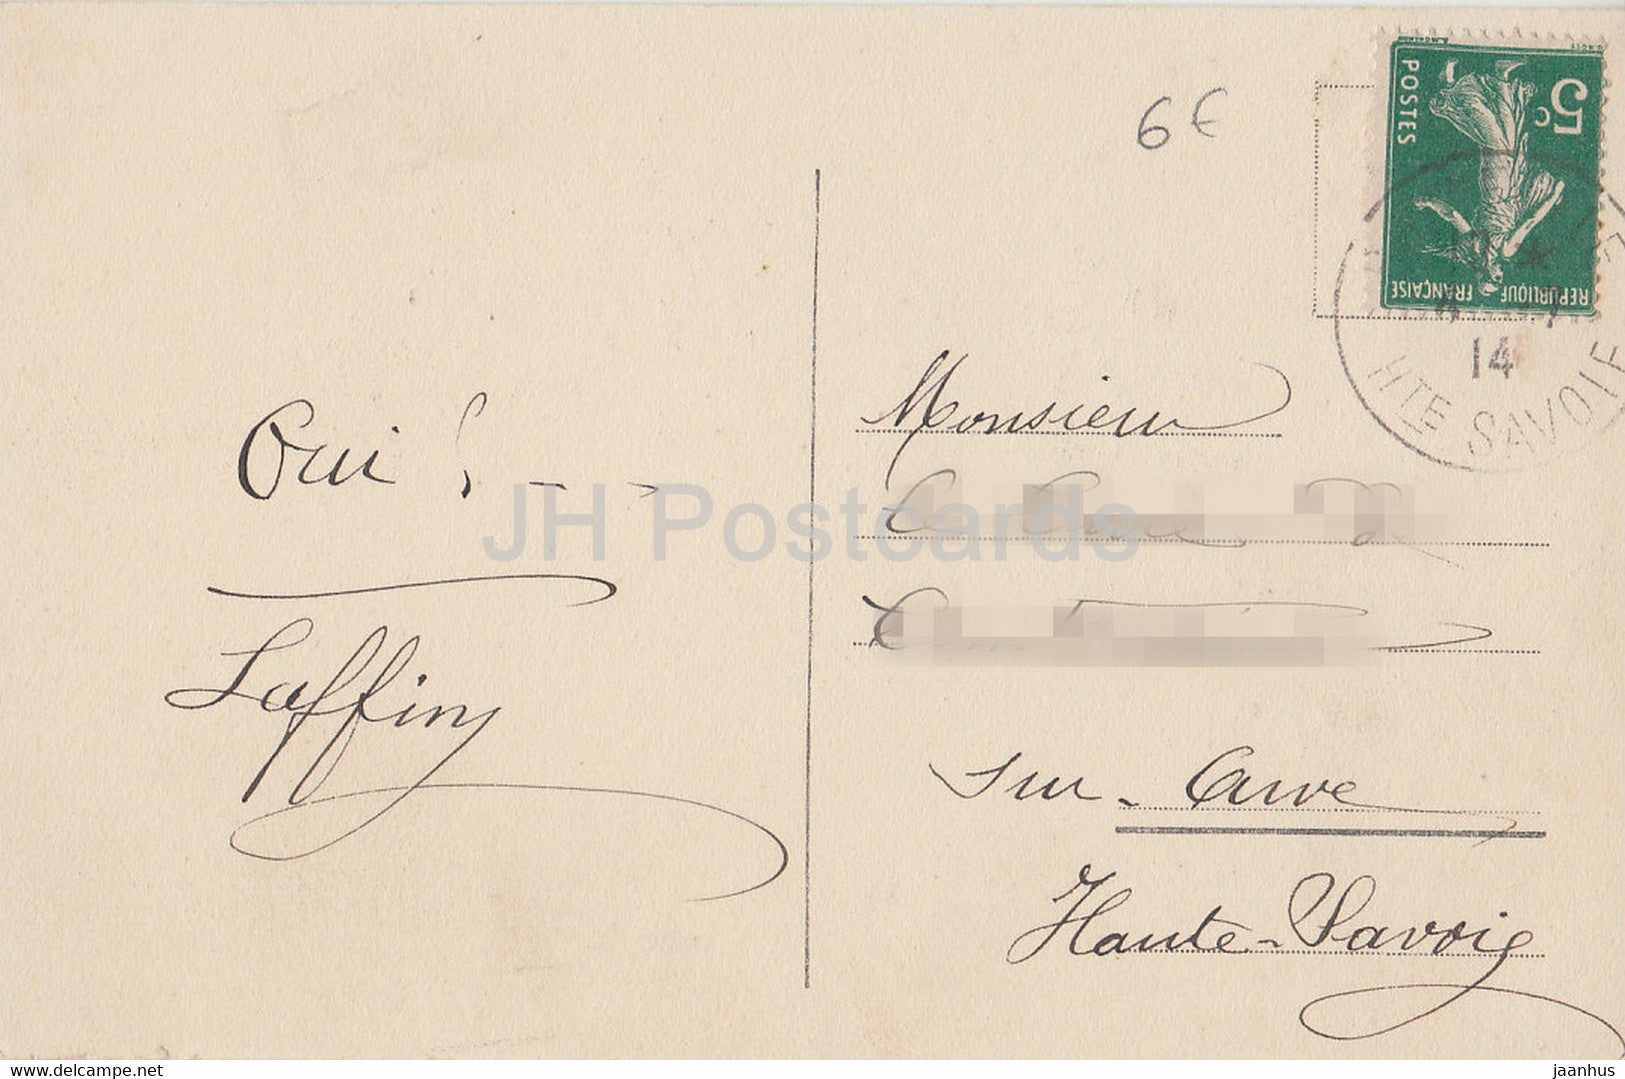 6€
5c
POSTES
REPUBLIQUE FRANÇAISE
14
HTE SAVOIE
Oui !---
Laffiny
Monsieur
sur-Arve
Haute-Savoie
JH Postcards
www.delcampe.net
jaanhus